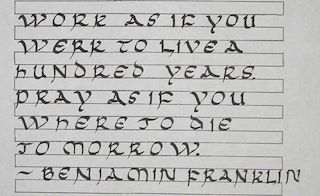 WORK AS IF YOU
WERE TO LIVE A
hUNDRED YEARS.
PRAY AS IF YOU
WhERE TO DIE
TO MORROW.
~ BENJAMIN FRANKLIN